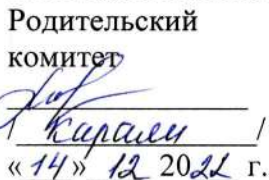 Родительский
комитет
/ Карали /
«14» 12 2022 г.